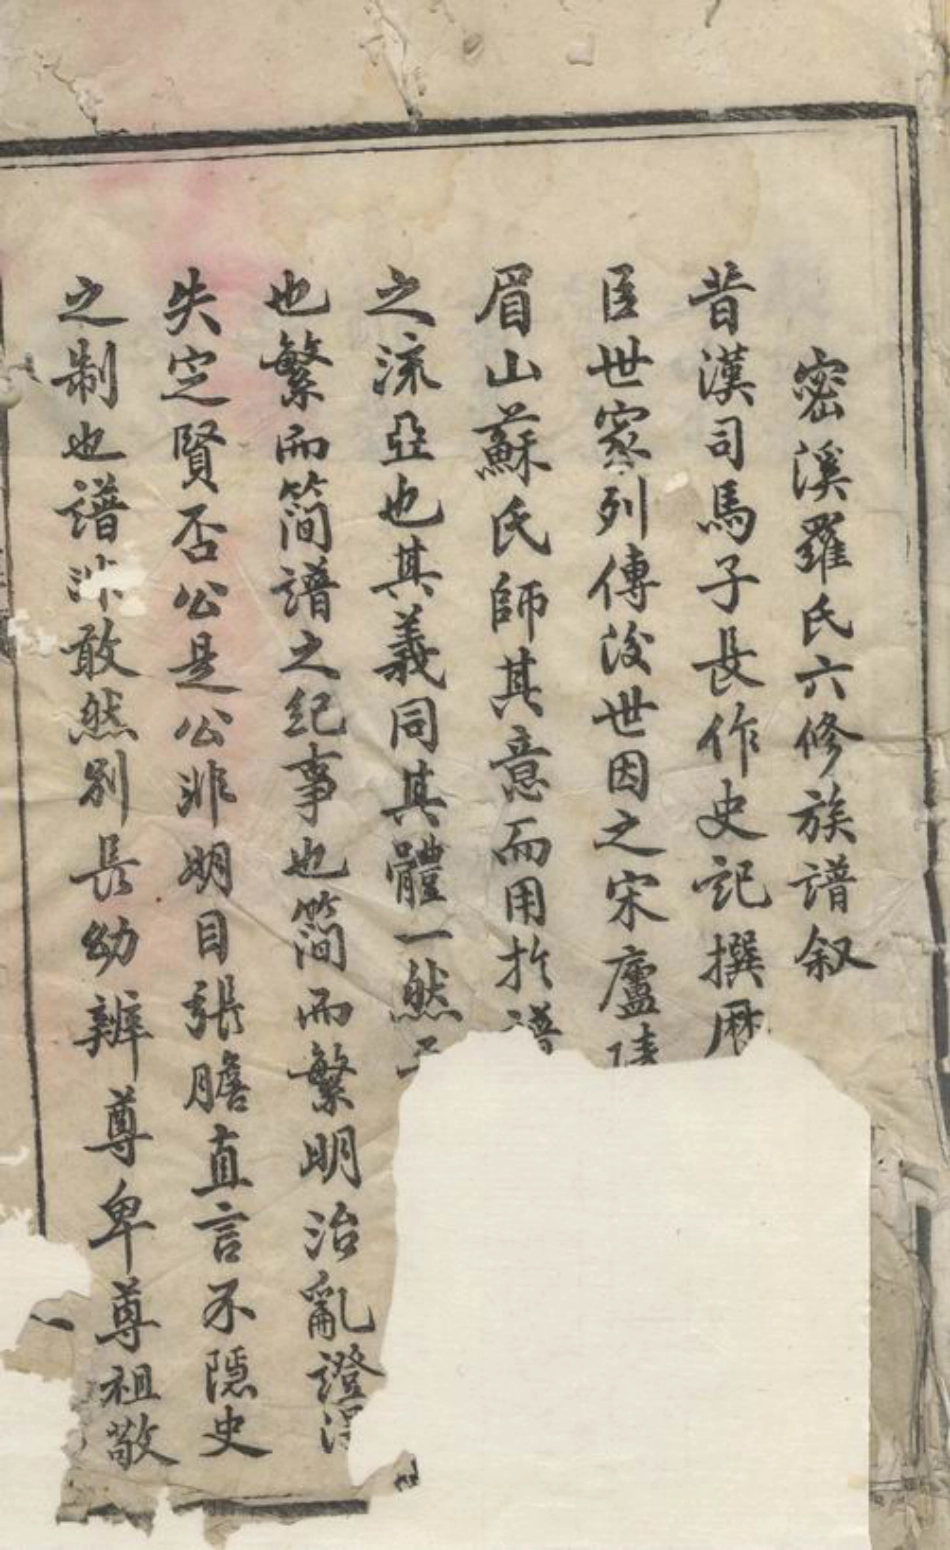 密溪羅氏六修族譜叙
昔漢司馬子長作史記撰曆
臣世家列傳後世因之宋廬陵
眉山蘇氏師其意而用於譜
之流亞也其義同其體一然
也繁而簡譜之紀事也簡而繁明治亂證得
失定賢否公是公非明目張膽直言不隱史
之制也譜非敢然别長幼辨尊卑尊祖敬